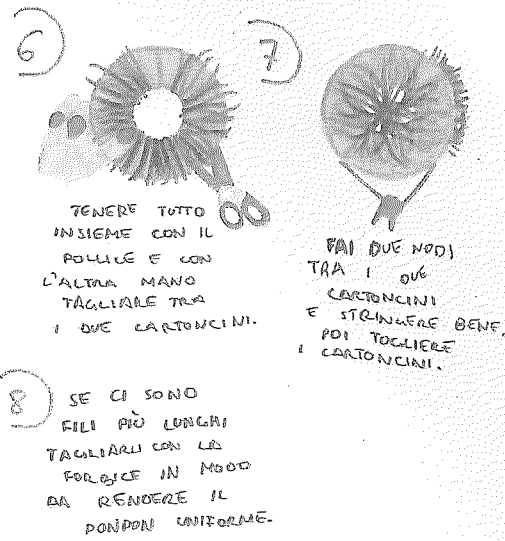 6
TENERE TUTTO
INSIEME CON IL
POLLICE E CON
L'ALTRA MANO
TAGLIARE TRA
I DUE CARTONCINI.
7
FAI DUE NODI
TRA I DUE
CARTONCINI
E STRINGERE BENE.
POI TOGLIERE
I CARTONCINI.
8
SE CI SONO
FILI PIÙ LUNGHI
TAGLIARLI CON LA
FORBICE IN MODO
DA RENDERE IL
PONPON UNIFORME.